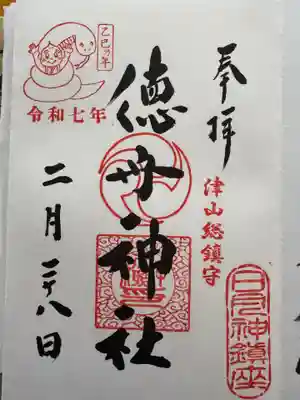 奉拝
津山総鎮守
神鎮座
徳守神社
乙巳の年
令和七年
二月二十八日